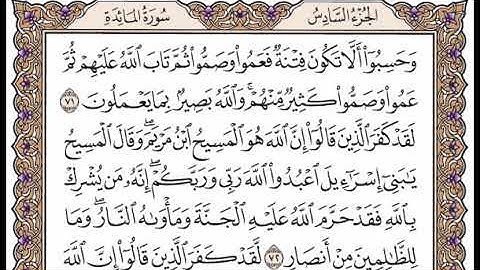 الجزء السادس
سورة المائدة
وَحَسِبُوٓا۟ أَلَّا تَكُونَ فِتْنَةٌ فَعَمُوا۟ وَصَمُّوا۟ ثُمَّ تَابَ ٱللَّهُ عَلَيْهِمْ ثُمَّ
عَمُوا۟ وَصَمُّوا۟ كَثِيرٌ مِّنْهُمْ ۚ وَٱللَّهُ بَصِيرٌۢ بِمَا يَعْمَلُونَ ٧١
لَقَدْ كَفَرَ ٱلَّذِينَ قَالُوٓا۟ إِنَّ ٱللَّهَ هُوَ ٱلْمَسِيحُ ٱبْنُ مَرْيَمَ ۖ وَقَالَ ٱلْمَسِيحُ
يَـٰبَنِىٓ إِسْرَٰٓءِيلَ ٱعْبُدُوا۟ ٱللَّهَ رَبِّى وَرَبَّكُمْ ۖ إِنَّهُۥ مَن يُشْرِكْ
بِٱللَّهِ فَقَدْ حَرَّمَ ٱللَّهُ عَلَيْهِ ٱلْجَنَّةَ وَمَأْوَىٰهُ ٱلنَّارُ ۖ وَمَا
لِلظَّـٰلِمِينَ مِنْ أَنصَارٍ ٧٢ لَّقَدْ كَفَرَ ٱلَّذِينَ قَالُوٓا۟ إِنَّ ٱللَّهَ